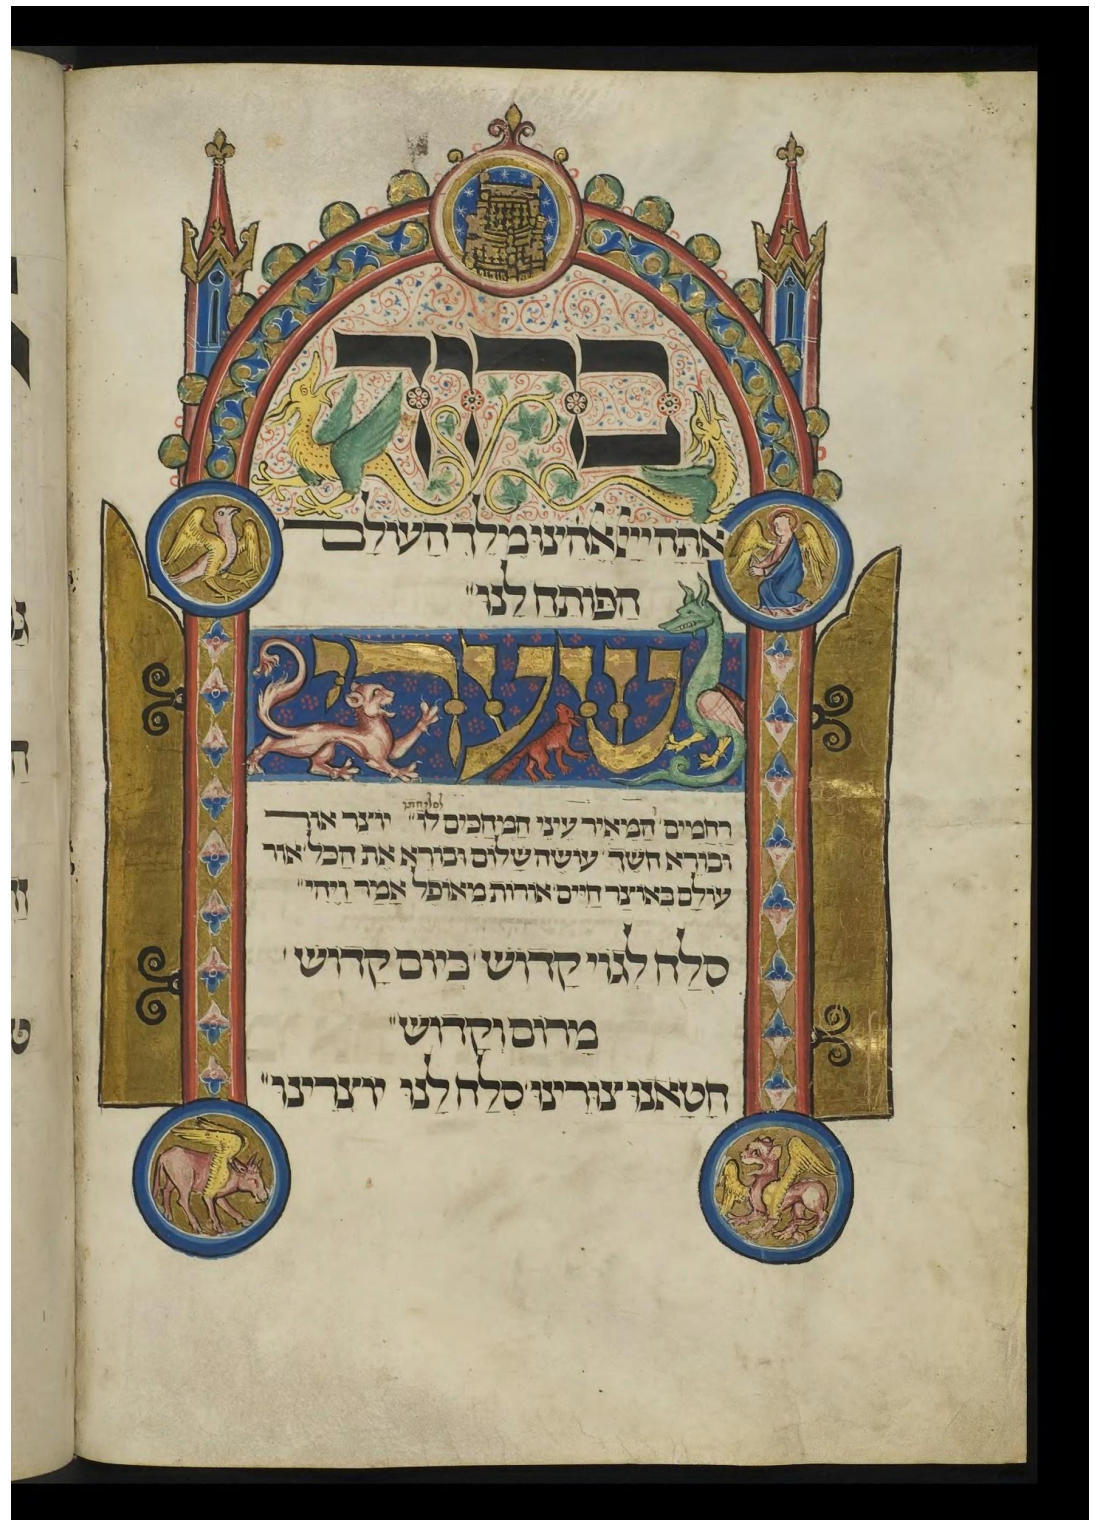 ברוך
אתה ייי אלהינו מלך העולם
הפותח לנו
שערי
רחמים המאיר עיני המחכים לו יוצר אור
ובורא חשך עושה שלום ובורא את הכל אור
עולם באוצר חיים אורות מאופל אמר ויהי
סלח לגוי קדוש ביום קדוש
מרום וקדוש
חטאנו צורינו סלח לנו יוצרינו